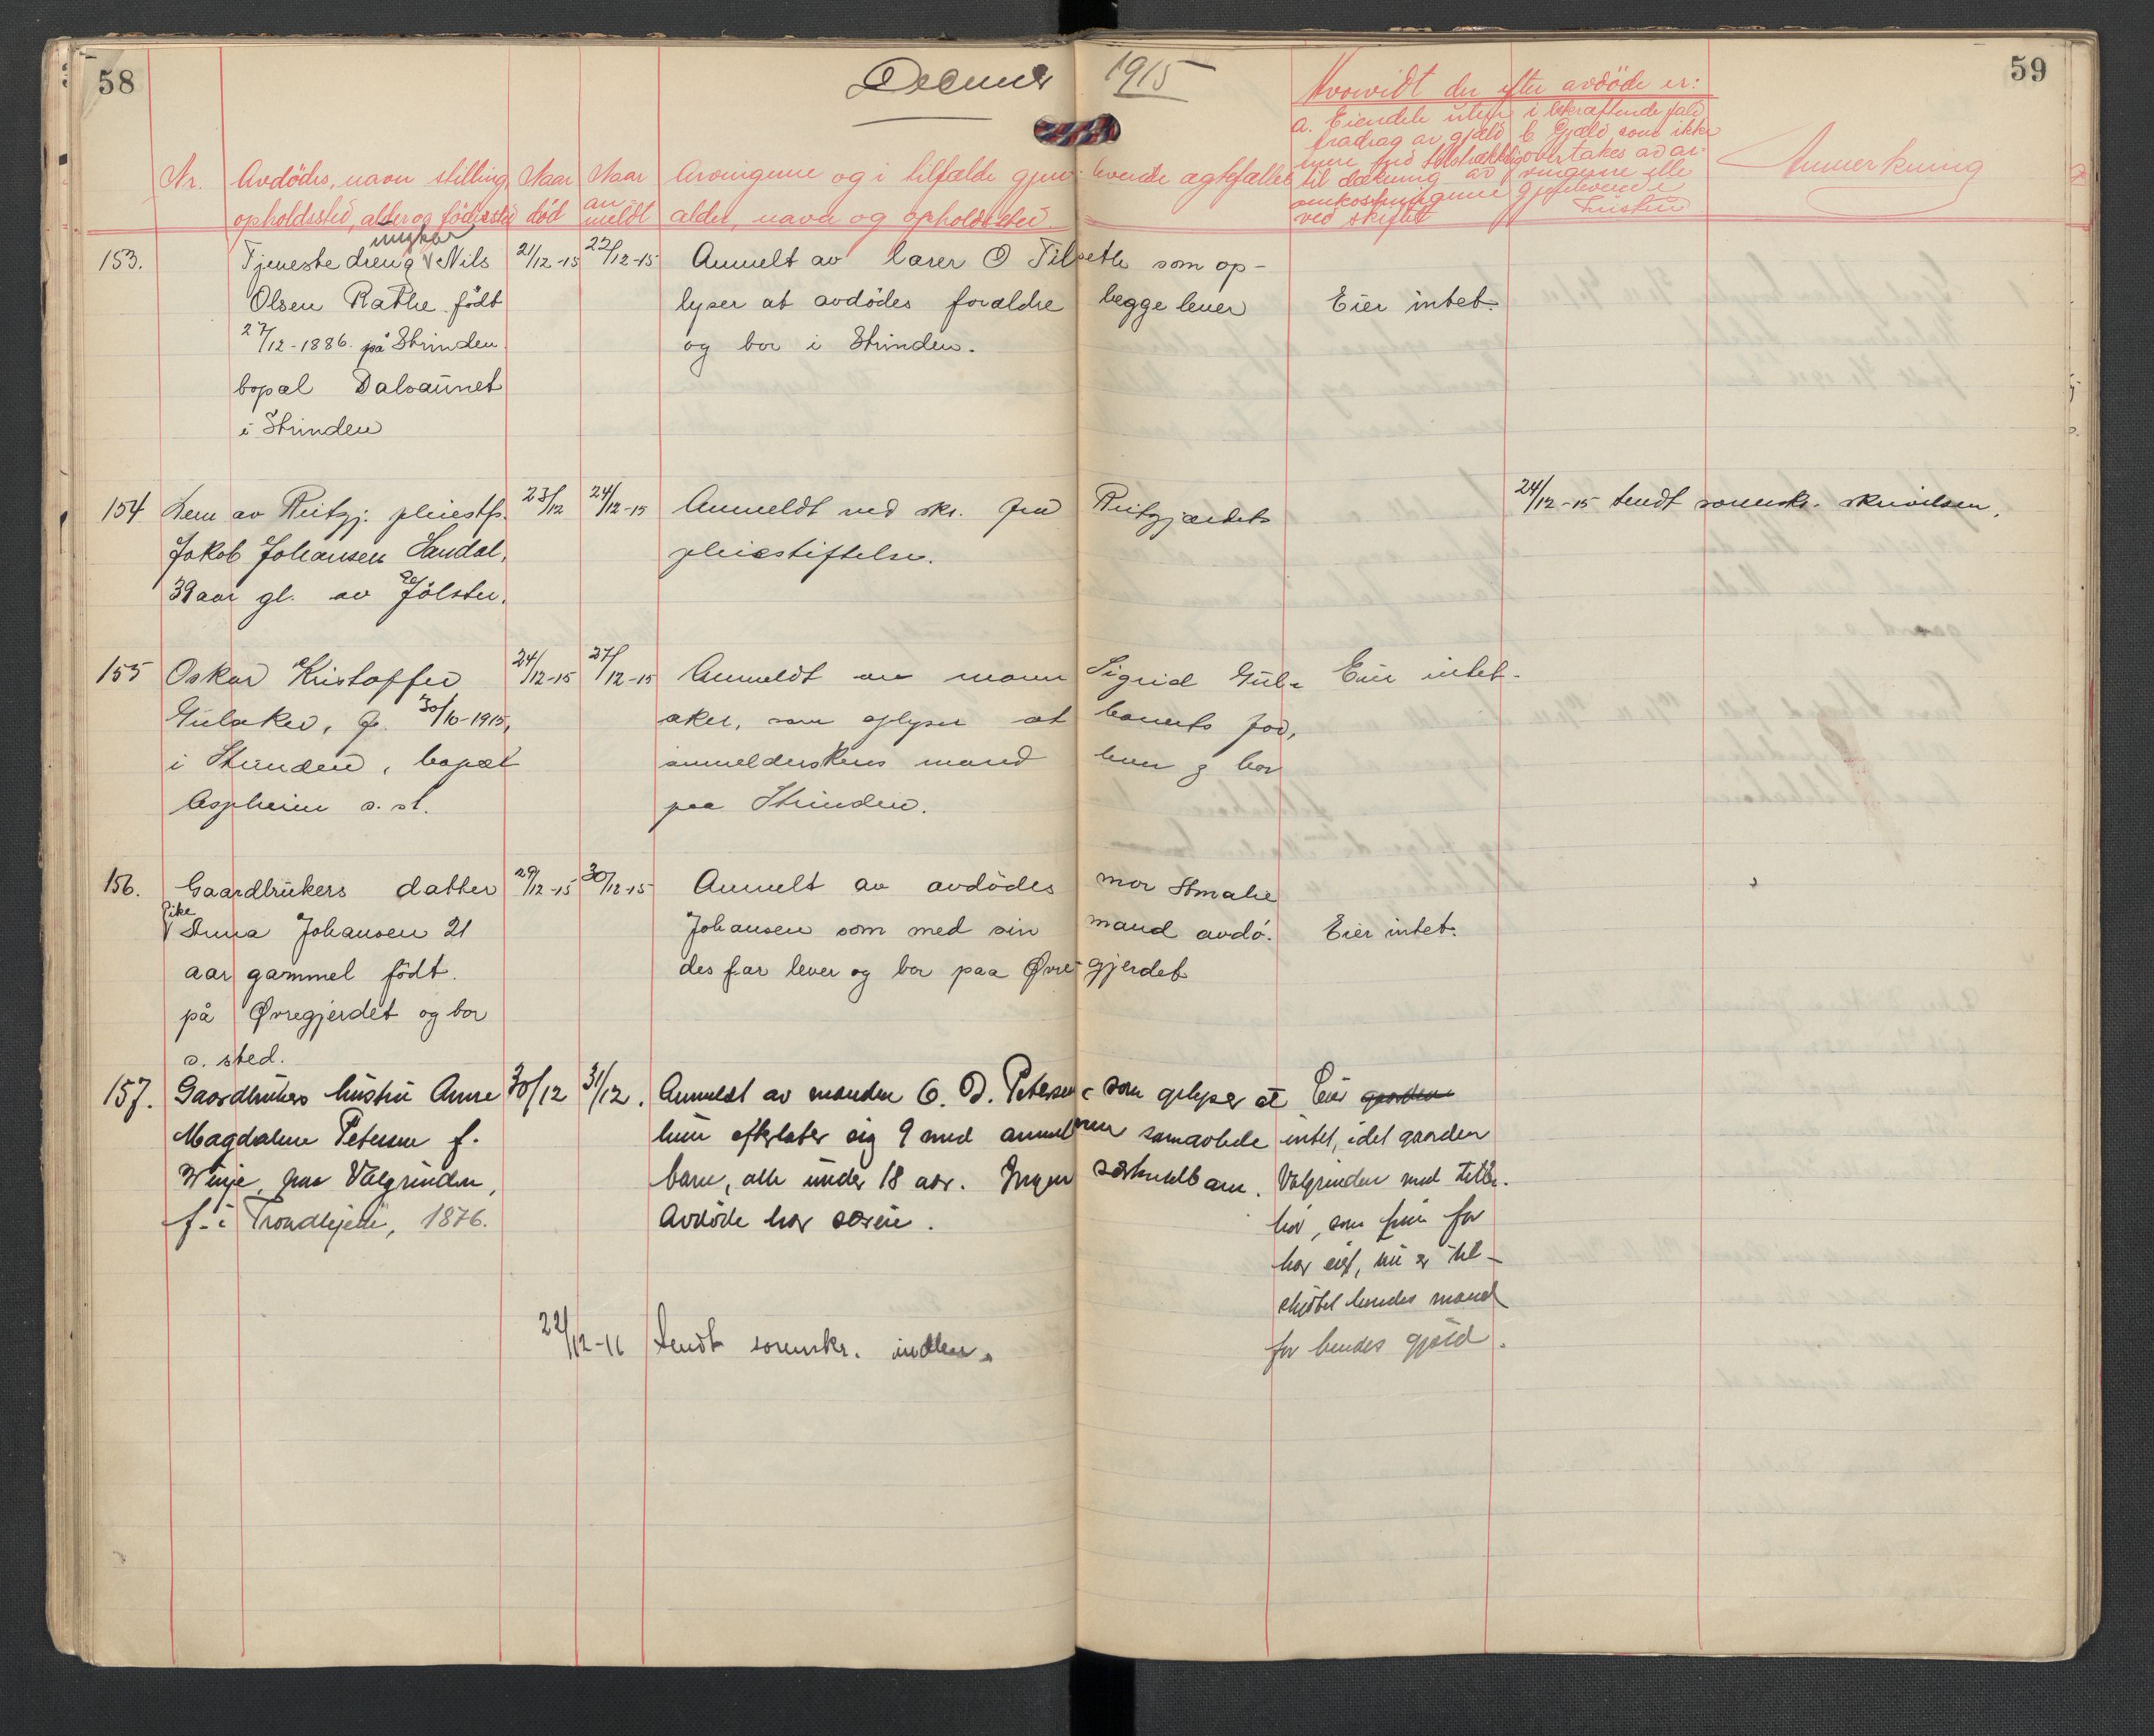 58
Decembr 1915
59
Hvorvidt der efter avdöde er:
a. Eiendele uten i bekræftende fald
fradrag av gjæld b. Gjæld, som ikke
overtakes av ar-
til dækning av vingerne eller
omkostningerne gjenlevende
ved skiftet
Anmerkning
Nr. Avdödes, navn stilling, Naar Naar Arvingerne og i tilfælde gjenlevende ægtefælles
opholdssted, alder og födested död anmeldt alder, navn og opholdssted.
153. Tjenestedreng ungkar Nils 21/12-15 22/12-15 Anmelt av lærer O Tilseth som op-
Olsen Rathe födt lyser at avdödes forældre begge lever Eier intet.
27/12-1886. på Strinden og bor i Strinden.
bopæl Dalsaunet
i Strinden
154 Lem av Reitgj. pleiestf. 23/12 24/12-15 Anmeldt ved skr. fra Reitgjærdets 24/12-15 Sendt sorensk. skrivelsen.
Jakob Johansen Sandal, pleiestiftelse.
39 aar gl. av Jölster.
155 Oskar Kristoffer 24/12-15 27/12-15 Anmeldt av moren Sigrid Gul- Eier intet.
Gulaker, f. 30/10-1915, aker, som oplyser at barnets far,
i Strinden, bopæl anmelderskens mand lever og bor
Aspheim s. st. paa Strinden.
156. Gaardbrukers datter 29/12-15 30/12-15 Anmelt av avdödes mor Amalie
Pike Anna Johansen 21 Johansen som med sin mand avdö- Eier intet.
aar gammel födt. des far lever og bor paa Øvregjerdet
på Øvregjerdet og bor
s. sted.
157. Gaardbrukers hustru Anne 30/12 31/12. Anmeldt av manden C. D. Petersen som oplyser at Eier gaarden
Magdalene Petersen f. hun efterlater sig 9 med anmelderen samavlede intet, idet gaarden
Winje, paa Valgrinden, barn, alle under 18 aar. Ingen særkuldbarn. Valgrinden med tilbe-
f. i Trondhjem, 1876. Avdöde har særeie. hör, som hun før
har eiet, nu er til-
skjötet hendes mand
for hendes gjæld.
22/12-16 Sendt sorenskr. indber.